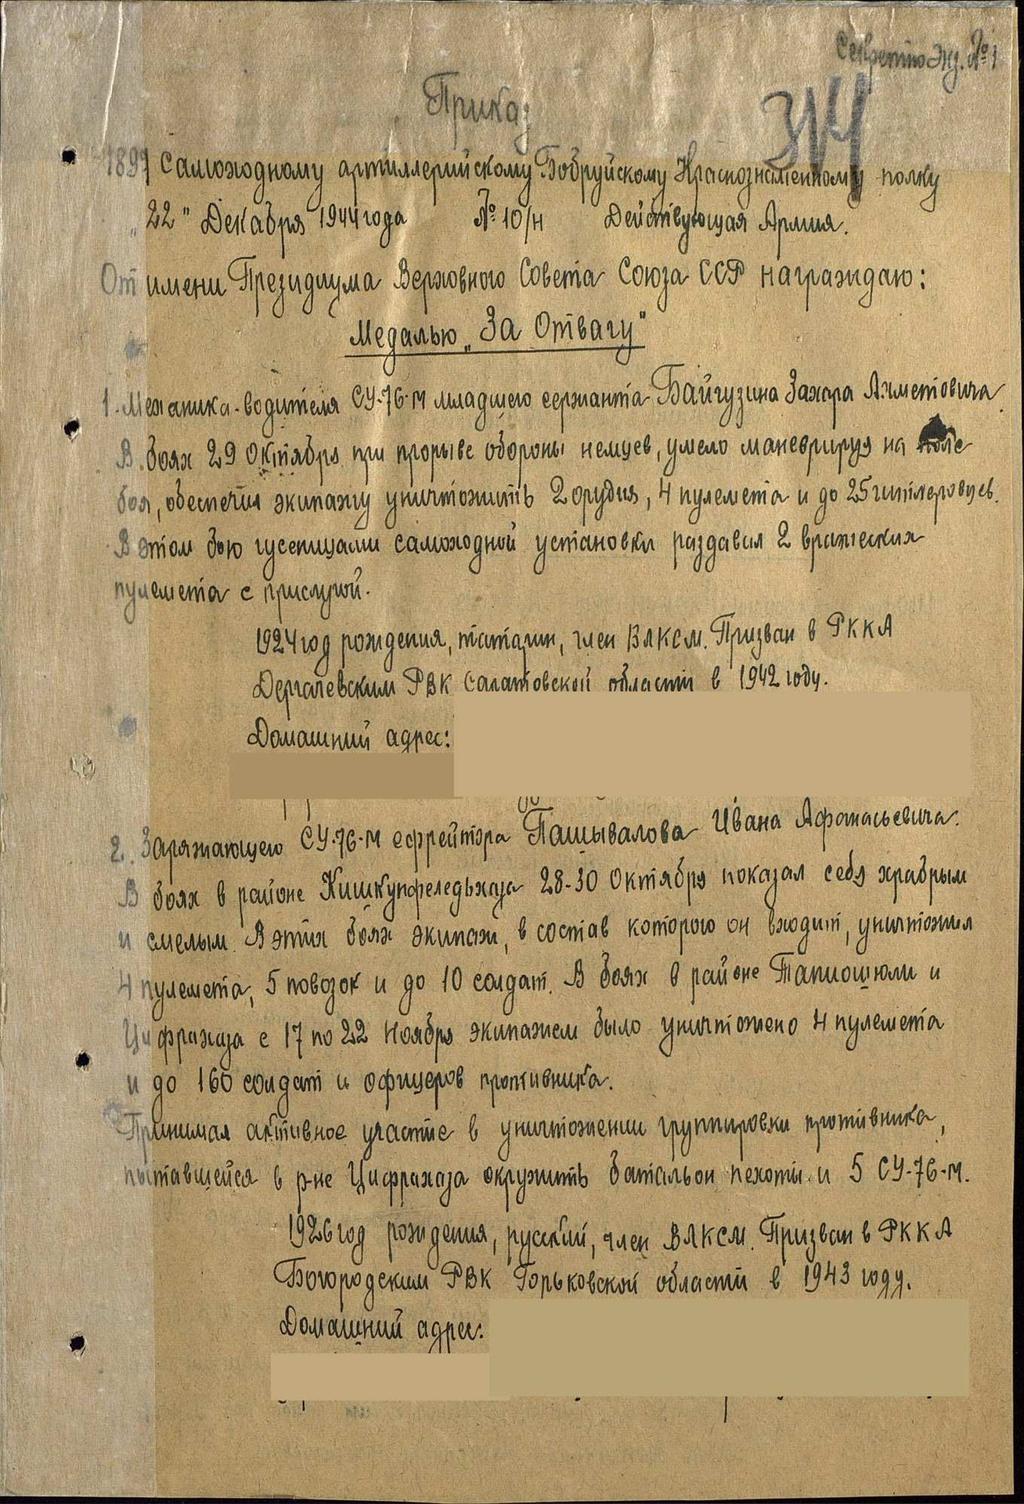 Секретно Экз. №1
344
Приказ
1897 Самоходному артиллерийскому Бобруйскому Краснознаменному полку
"22" Декабря 1944 года № 10/н Действующая Армия.
От имени Президиума Верховного Совета Союза ССР награждаю:
Медалью "За Отвагу"
1. Механика-водителя СУ-76-М младшего сержанта Байгузина Захара Ахметовича.
В боях 29 Октября при прорыве обороны немцев, умело маневрируя на поле
боя, обеспечил экипажу уничтожить 2 орудия, 4 пулемета и до 25 гитлеровцев.
В этом бою гусеницами самоходной установки раздавил 2 вражеских
пулемета с прислугой.
1924 год рождения, татарин, член ВЛКСМ. Призван в РККА
Дергачевским РВК Саратовской области в 1942 году.
Домашний адрес:
2. Заряжающего СУ-76-М ефрейтора Пашывалова Ивана Афанасьевича.
В боях в районе Кишкунфеледьхаза 28-30 Октября показал себя храбрым
и смелым. В этих боях экипаж, в состав которого он входит, уничтожил
4 пулемета, 5 повозок и до 10 солдат. В боях в районе Тапиошюли и
Цифрахаза с 17 по 22 Ноября экипажем было уничтожено 4 пулемета
и до 160 солдат и офицеров противника.
Принимал активное участие в уничтожении группировки противника,
пытавшейся в р-не Цифрахаза окружить батальон пехоты и 5 СУ-76-М.
1926 год рождения, русский, член ВЛКСМ. Призван в РККА
Богородским РВК Горьковской области в 1943 году.
Домашний адрес: